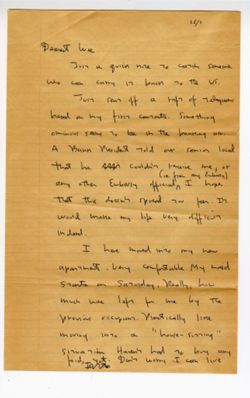 Dearest
Just a quick note to catch someone
who can carry it back to the US.
Just sent off a raft of telegrams
based on my first contacts. Something
ominous seems to be in the
A told our senior local
that he couldn't receive me, or
(ie from my Embassy)
any other Embassy officials, I hope
that this doesn't spread too far. It
would make my life very difficult
indeed.
I have moved into my new
apartment. Very comfortable. My maid
starts on Saturday. Really, how
much was left for me by the
previous occupant. Practically like
moving into a "house-sitting"
situation. Haven't had to buy any
food, yet. Don't worry I can live